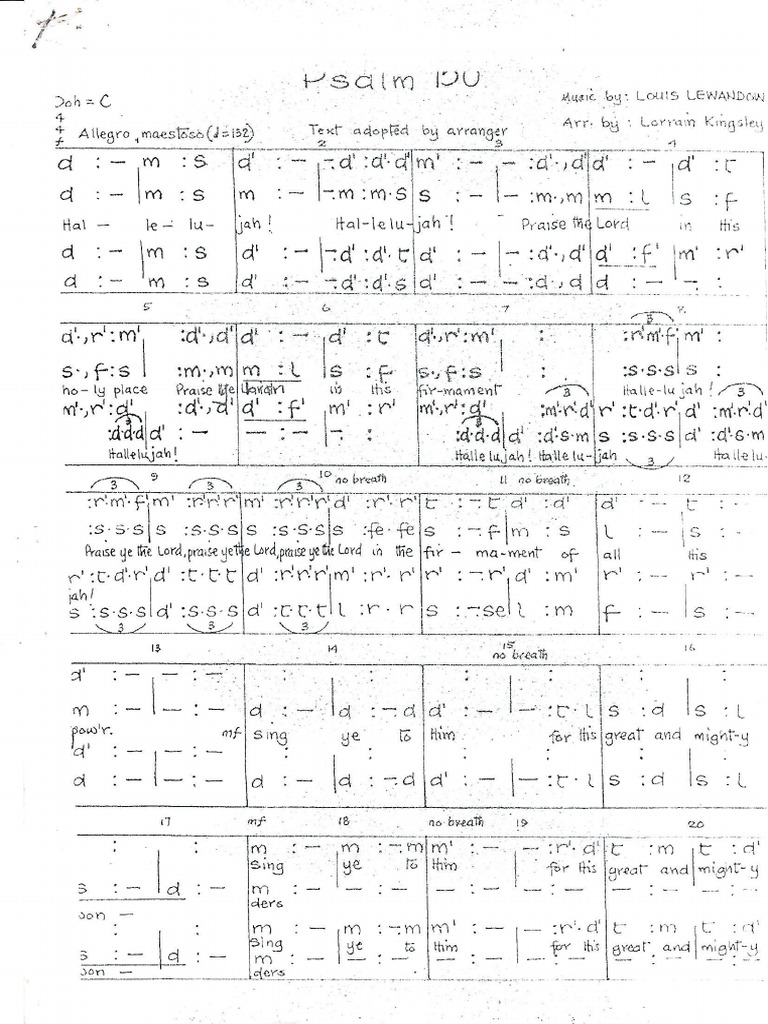 Psalm 150
Doh = C
Music by: LOUIS LEWANDOW
4
4
f Allegro, maestoso (d=132) Text adopted by arranger Arr. by : Lorrain Kingsley
2 3 4
d : – | m : s | d' : – | –.d' :d'.d' | m' : – | – :d'.,d' | d' : – | d' : t
d : – | m : s | m : – | –.m :m.s | s : – | – :m.,m | m : l | s : f
Hal – le – lu – jah! Hal-lelu-jah! Praise the Lord in His
d : – | m : s | d' : – | –.d' :d'.t | d' : – | – :d'.,d' | d' : f' | m' : r'
d : – | m : s | d' : – | –.d' :d'.s | d' : – | – :d.,d | d : – | – :
5 6 7 8
d'.,r':m' | :d'.,d' | d' : – | d' : t | d'.,r':m' | : | :r'.m'.f' | m' :
s.,f:s | :m.,m | m : l | s : f | s.,f:s | : | :s.s.s | s :
ho-ly place Praise ye the Lord in His fir-mament Halle-lu jah!
m'.,r':d' | :d'.,d' | d' : f' | m' : r' | m'.,r':d' | :m'.r'.d' | r' :t.d'.r' | d' :m'.r'.d'
:d.d.d | d' : – | – : – | – : | :d.d.d | d' :d'.s.m | s :s.s.s | d' :d'.s.m
Hallelujah! Hallelu jah! Hallelu-jah Hallelu-
9 10 no breath 11 no breath 12
:r'.m'.f' | m' :r'.r'.r' | m' :r'.r'.r' | d' :r'.r' | t : –.t | d' :d' | d' : – | t : –
:s.s.s | s :s.s.s | s :s.s.s | s :fe.fe | s : –.f | m : s | l : – | s : –
Praise ye the Lord, praise ye the Lord, praise ye the Lord in the fir – ma-ment of all His
r' :t.d'.r' | d' :t.t.t | d' :r'.r'.r' | m' :r'.r' | r' : –.r' | d' : m' | r' : – | r' : –
jah!
s :s.s.s | d' :s.s.s | d' :t.t.t | l :r.r | s : –.se | l : m | f : – | s : –
13 14 15 no breath 16
d' : – | – : – | : | : | : | : | : | :
m : – | – : – | d : – | d : –.d | d' : – | – :t.l | s : d | s : l
pow'r. mf sing ye to Him for His great and might-y
d' : – | – : – | : | : | : | : | : | :
d : – | – : – | d : – | d : –.d | d' : – | – :t.l | s : d | s : l
17 mf 18 no breath 19 20
: | : | m : – | m : –.m | m' : – | – :r'.d' | t : m | t : d'
Sing ye to Him for His great and might-y
s : – | d : – | m : – | – : – | – : – | – : – | – : – | – : –
son – ders
: | : | m : – | m : –.m | m' : – | – :r'.d' | t : m | t : d'
Sing ye to Him for His great and might-y
s : – | d : – | m : – | – : – | – : – | – : – | – : – | – : –
son – ders